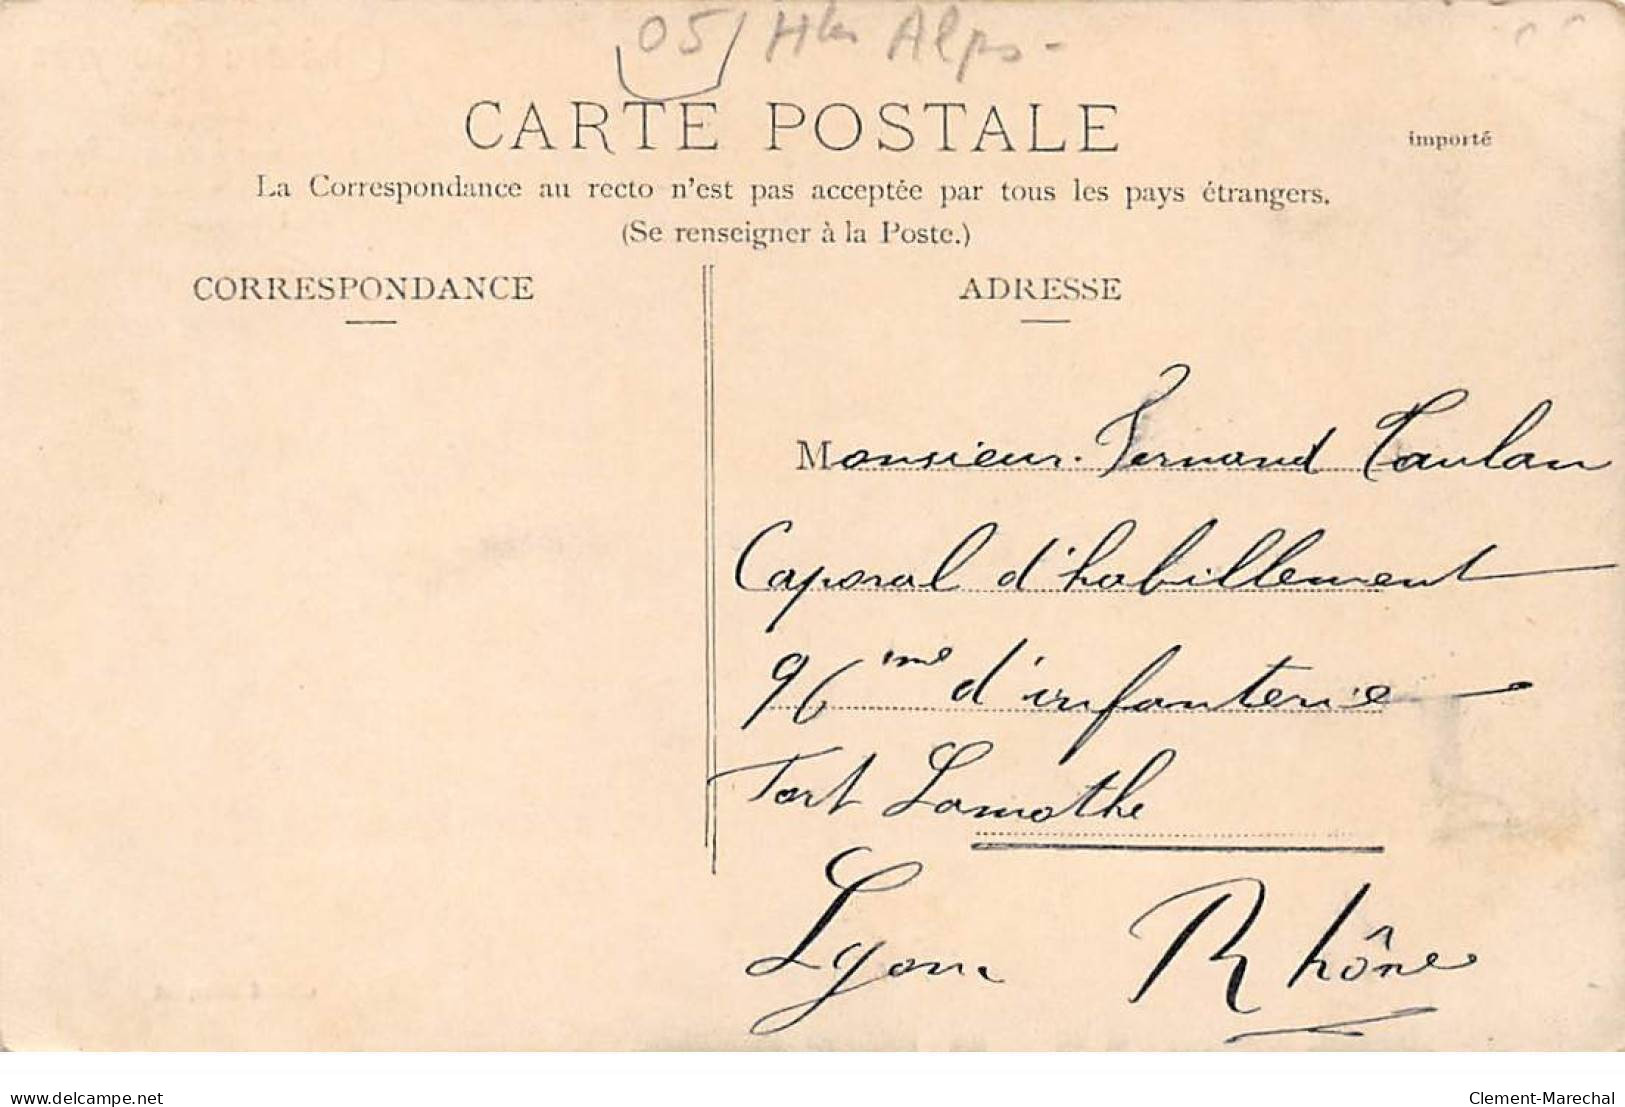 05 / Htes Alpes -
CARTE POSTALE
importé
La Correspondance au recto n'est pas acceptée par tous les pays étrangers.
(Se renseigner à la Poste.)
CORRESPONDANCE
ADRESSE
Monsieur. Fernand Taulan
Caporal d'habillement
96ime d'infanterie
Fort Lamothe
Lyon Rhône
www.delcampe.net
Clement-Marechal